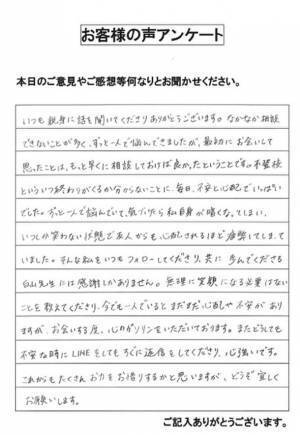 お客様の声アンケート
本日のご意見やご感想等何なりとお聞かせください。
いつも親身に話を聞いてくださりありがとうございます。なかなか相談
できないことが多く、ずっと一人で悩んできましたが、最初にお会いして
思ったことは、もっと早くに相談しておけば良かったということです。不登校
といういつ終わりがくるか分からないことに、毎日、不安と心配でいっぱい
でした。ずっと一人で悩んでいて、気づいたら私自身が暗くなってしまい、
いつしか笑わない状態で友人からも、心配されるほど疲弊してしまって
いました。そんな私をいつもフォローしてくださり、共に歩んでくださる
白山先生には感謝しかありません。無理に笑顔になる必要はない
ことを教えてくださり、今でも一人でいるとまだまだ心配や不安があり
ますが、お会いする度、心のガソリンをいただいております。またどうしても
不安な時にLINEをしてもすぐに返信をしてくださり、心強いです。
これからもたくさんお力をお借りするかと思いますが、どうぞ宜しく
お願いします。
ご記入ありがとうございます。